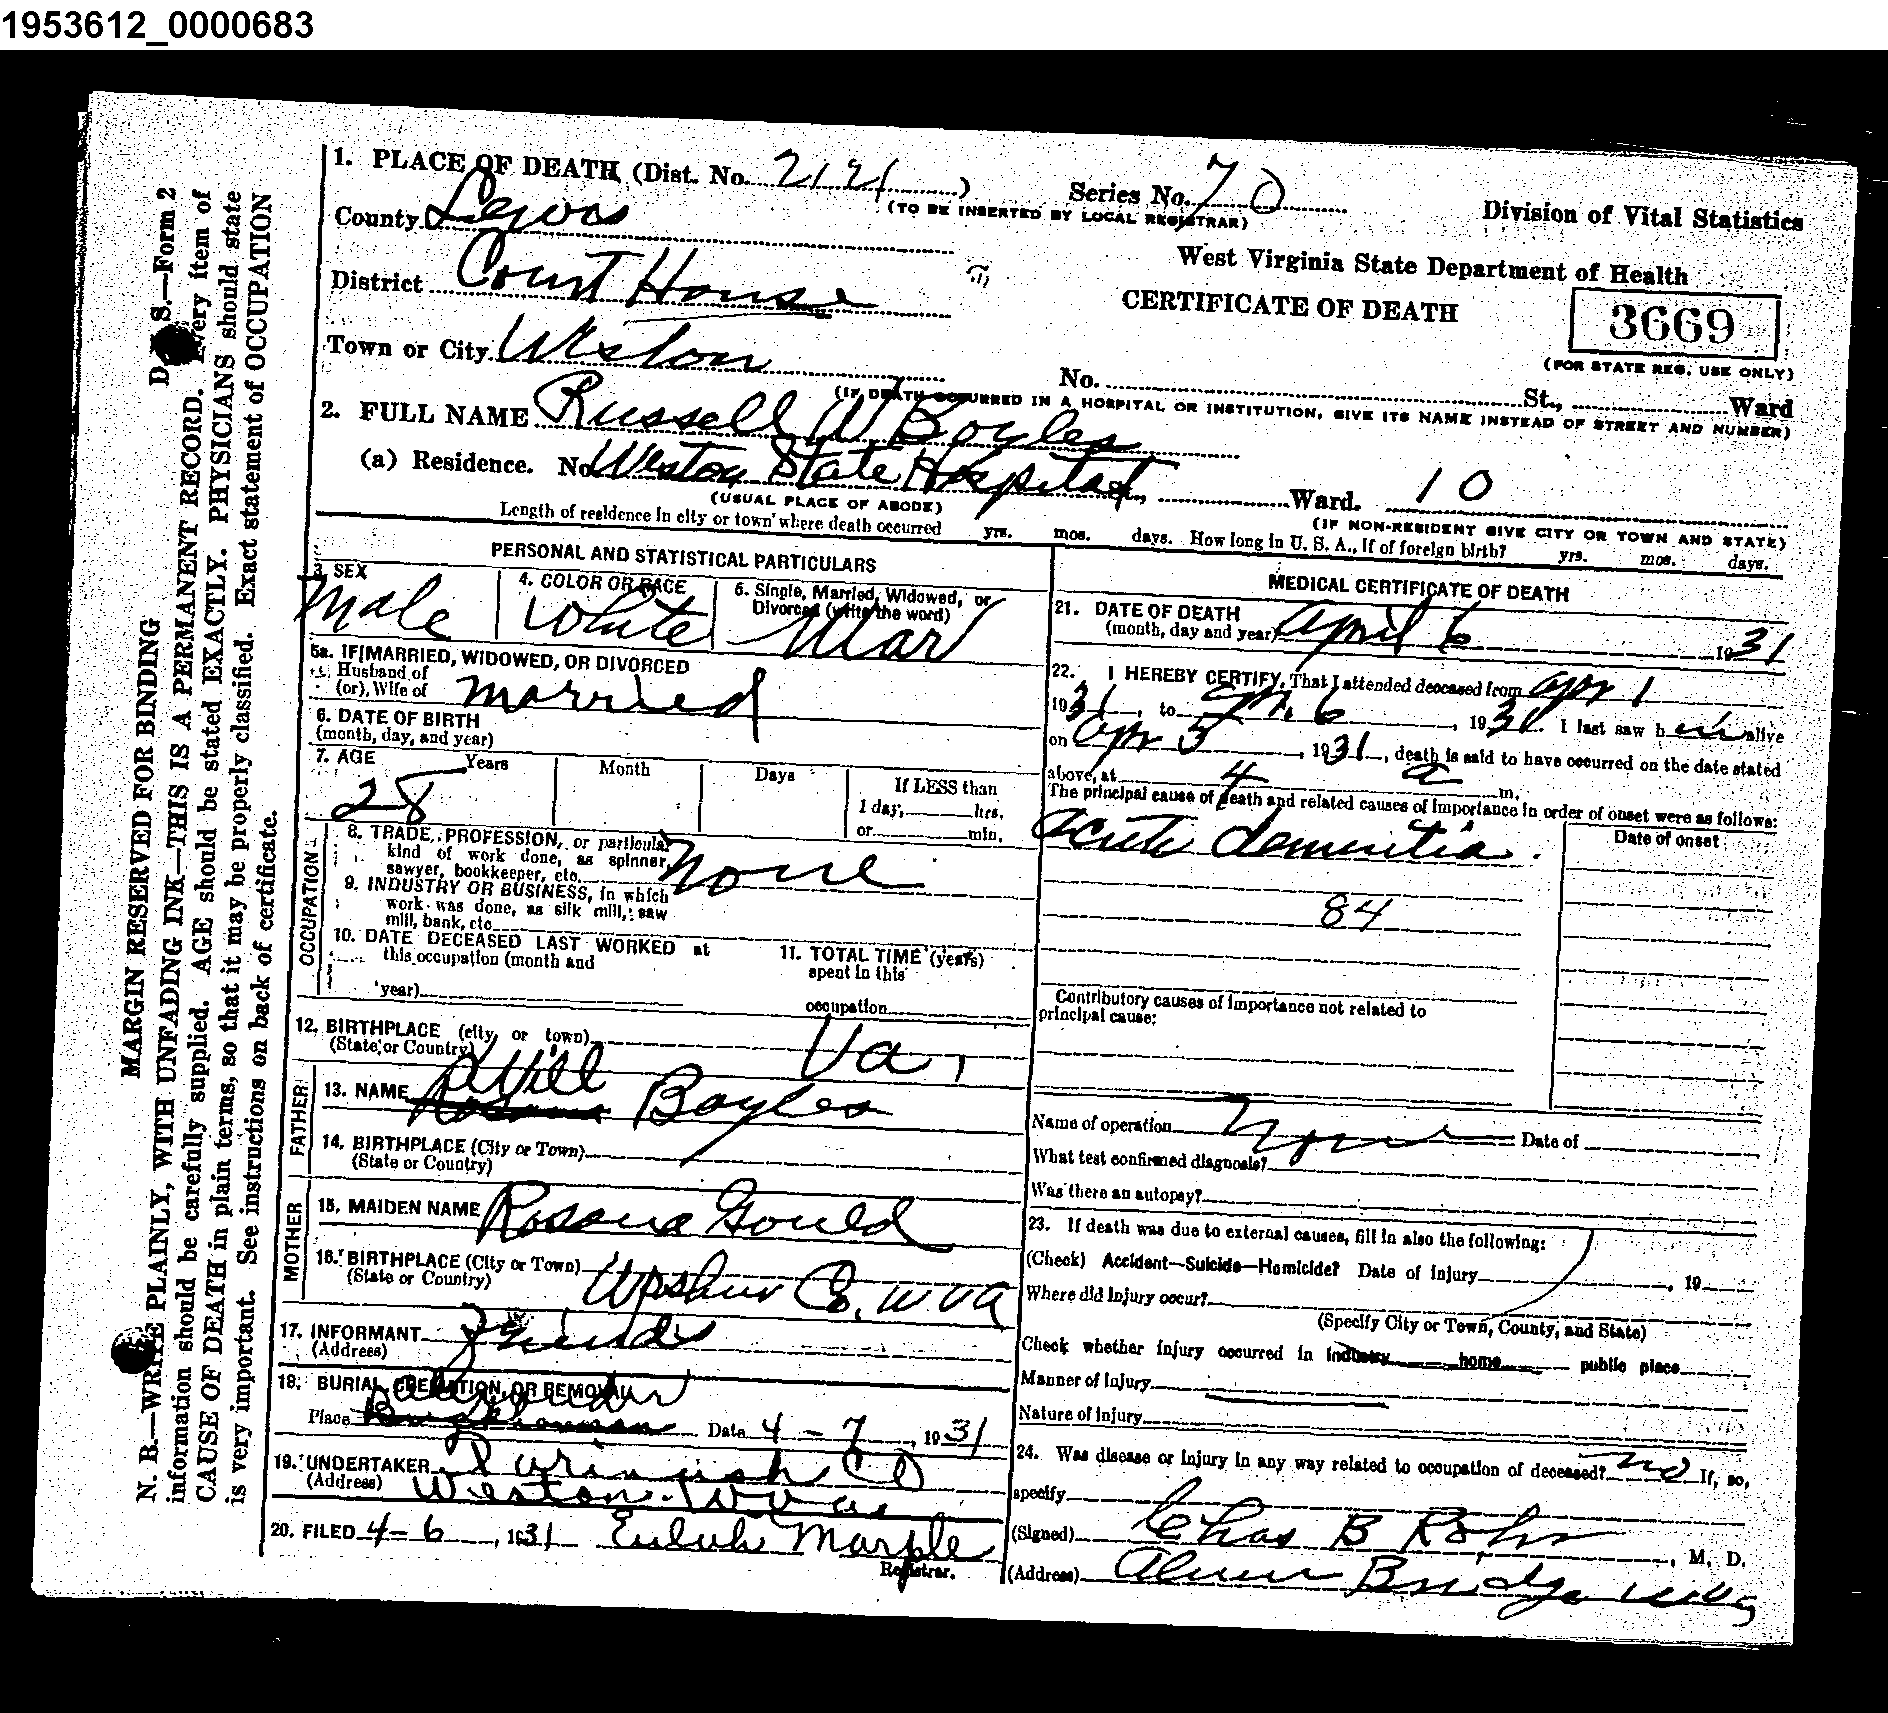 1953612_0000683
1. PLACE OF DEATH (Dist. No. 2121 ) Series No. 70
(TO BE INSERTED BY LOCAL REGISTRAR)
Division of Vital Statistics
County Lewis
West Virginia State Department of Health
District Court House
CERTIFICATE OF DEATH
3669
(FOR STATE REG. USE ONLY)
Town or City Weston No. St., Ward
(IF DEATH OCCURRED IN A HOSPITAL OR INSTITUTION, GIVE ITS NAME INSTEAD OF STREET AND NUMBER)
2. FULL NAME Russell W. Boyles
(a) Residence. No. Weston State Hospital, Ward. 10
(USUAL PLACE OF ABODE) (IF NON-RESIDENT GIVE CITY OR TOWN AND STATE)
Length of residence in city or town where death occurred yrs. mos. days. How long in U. S. A., if of foreign birth? yrs. mos. days.
PERSONAL AND STATISTICAL PARTICULARS
3. SEX Male
4. COLOR OR RACE White
5. Single, Married, Widowed, or
Divorced (write the word) Mar
5a. IF MARRIED, WIDOWED, OR DIVORCED
Husband of
(or) Wife of married
6. DATE OF BIRTH
(month, day, and year)
7. AGE Years Month Days If LESS than
28 1 day, hrs.
or min.
OCCUPATION
8. TRADE, PROFESSION, or particular
kind of work done, as spinner,
sawyer, bookkeeper, etc. None
9. INDUSTRY OR BUSINESS, in which
work was done, as silk mill, saw
mill, bank, etc.
10. DATE DECEASED LAST WORKED at
this occupation (month and
year)
11. TOTAL TIME (years)
spent in this
occupation
12. BIRTHPLACE (city or town)
(State or Country) Va,
FATHER
13. NAME Will Boyles
14. BIRTHPLACE (City or Town)
(State or Country)
MOTHER
15. MAIDEN NAME Rosana Gould
16. BIRTHPLACE (City or Town)
(State or Country) Upshur Co. W Va
17. INFORMANT Friends
(Address)
18. BURIAL, CREMATION, OR REMOVAL
Place Date 4 - 7, 1931
19. UNDERTAKER Co
(Address) Weston W Va
20. FILED 4-6, 1931 Marple
Registrar.
MEDICAL CERTIFICATE OF DEATH
21. DATE OF DEATH
(month, day and year) April 6 1931
22. I HEREBY CERTIFY, That I attended deceased from Apr 1
1931, to 6, 1931. I last saw him alive
on Apr 5, 1931, death is said to have occurred on the date stated
above, at 4 a m.
The principal cause of death and related causes of importance in order of onset were as follows:
Date of onset
Acute dementia.
84
Contributory causes of importance not related to
principal cause:
Name of operation None Date of
What test confirmed diagnosis?
Was there an autopsy?
23. If death was due to external causes, fill in also the following:
(Check) Accident—Suicide—Homicide? Date of injury , 19
Where did injury occur?
(Specify City or Town, County, and State)
Check whether injury occurred in industry home public place
Manner of injury
Nature of injury
24. Was disease or injury in any way related to occupation of deceased? no If, so,
specify
(Signed) Chas B Rohr, M. D.
(Address) Bridge W Va
D. S.—Form 2
MARGIN RESERVED FOR BINDING
N. B.—WRITE PLAINLY, WITH UNFADING INK—THIS IS A PERMANENT RECORD. Every item of
information should be carefully supplied. AGE should be stated EXACTLY. PHYSICIANS should state
CAUSE OF DEATH in plain terms, so that it may be properly classified. Exact statement of OCCUPATION
is very important. See instructions on back of certificate.